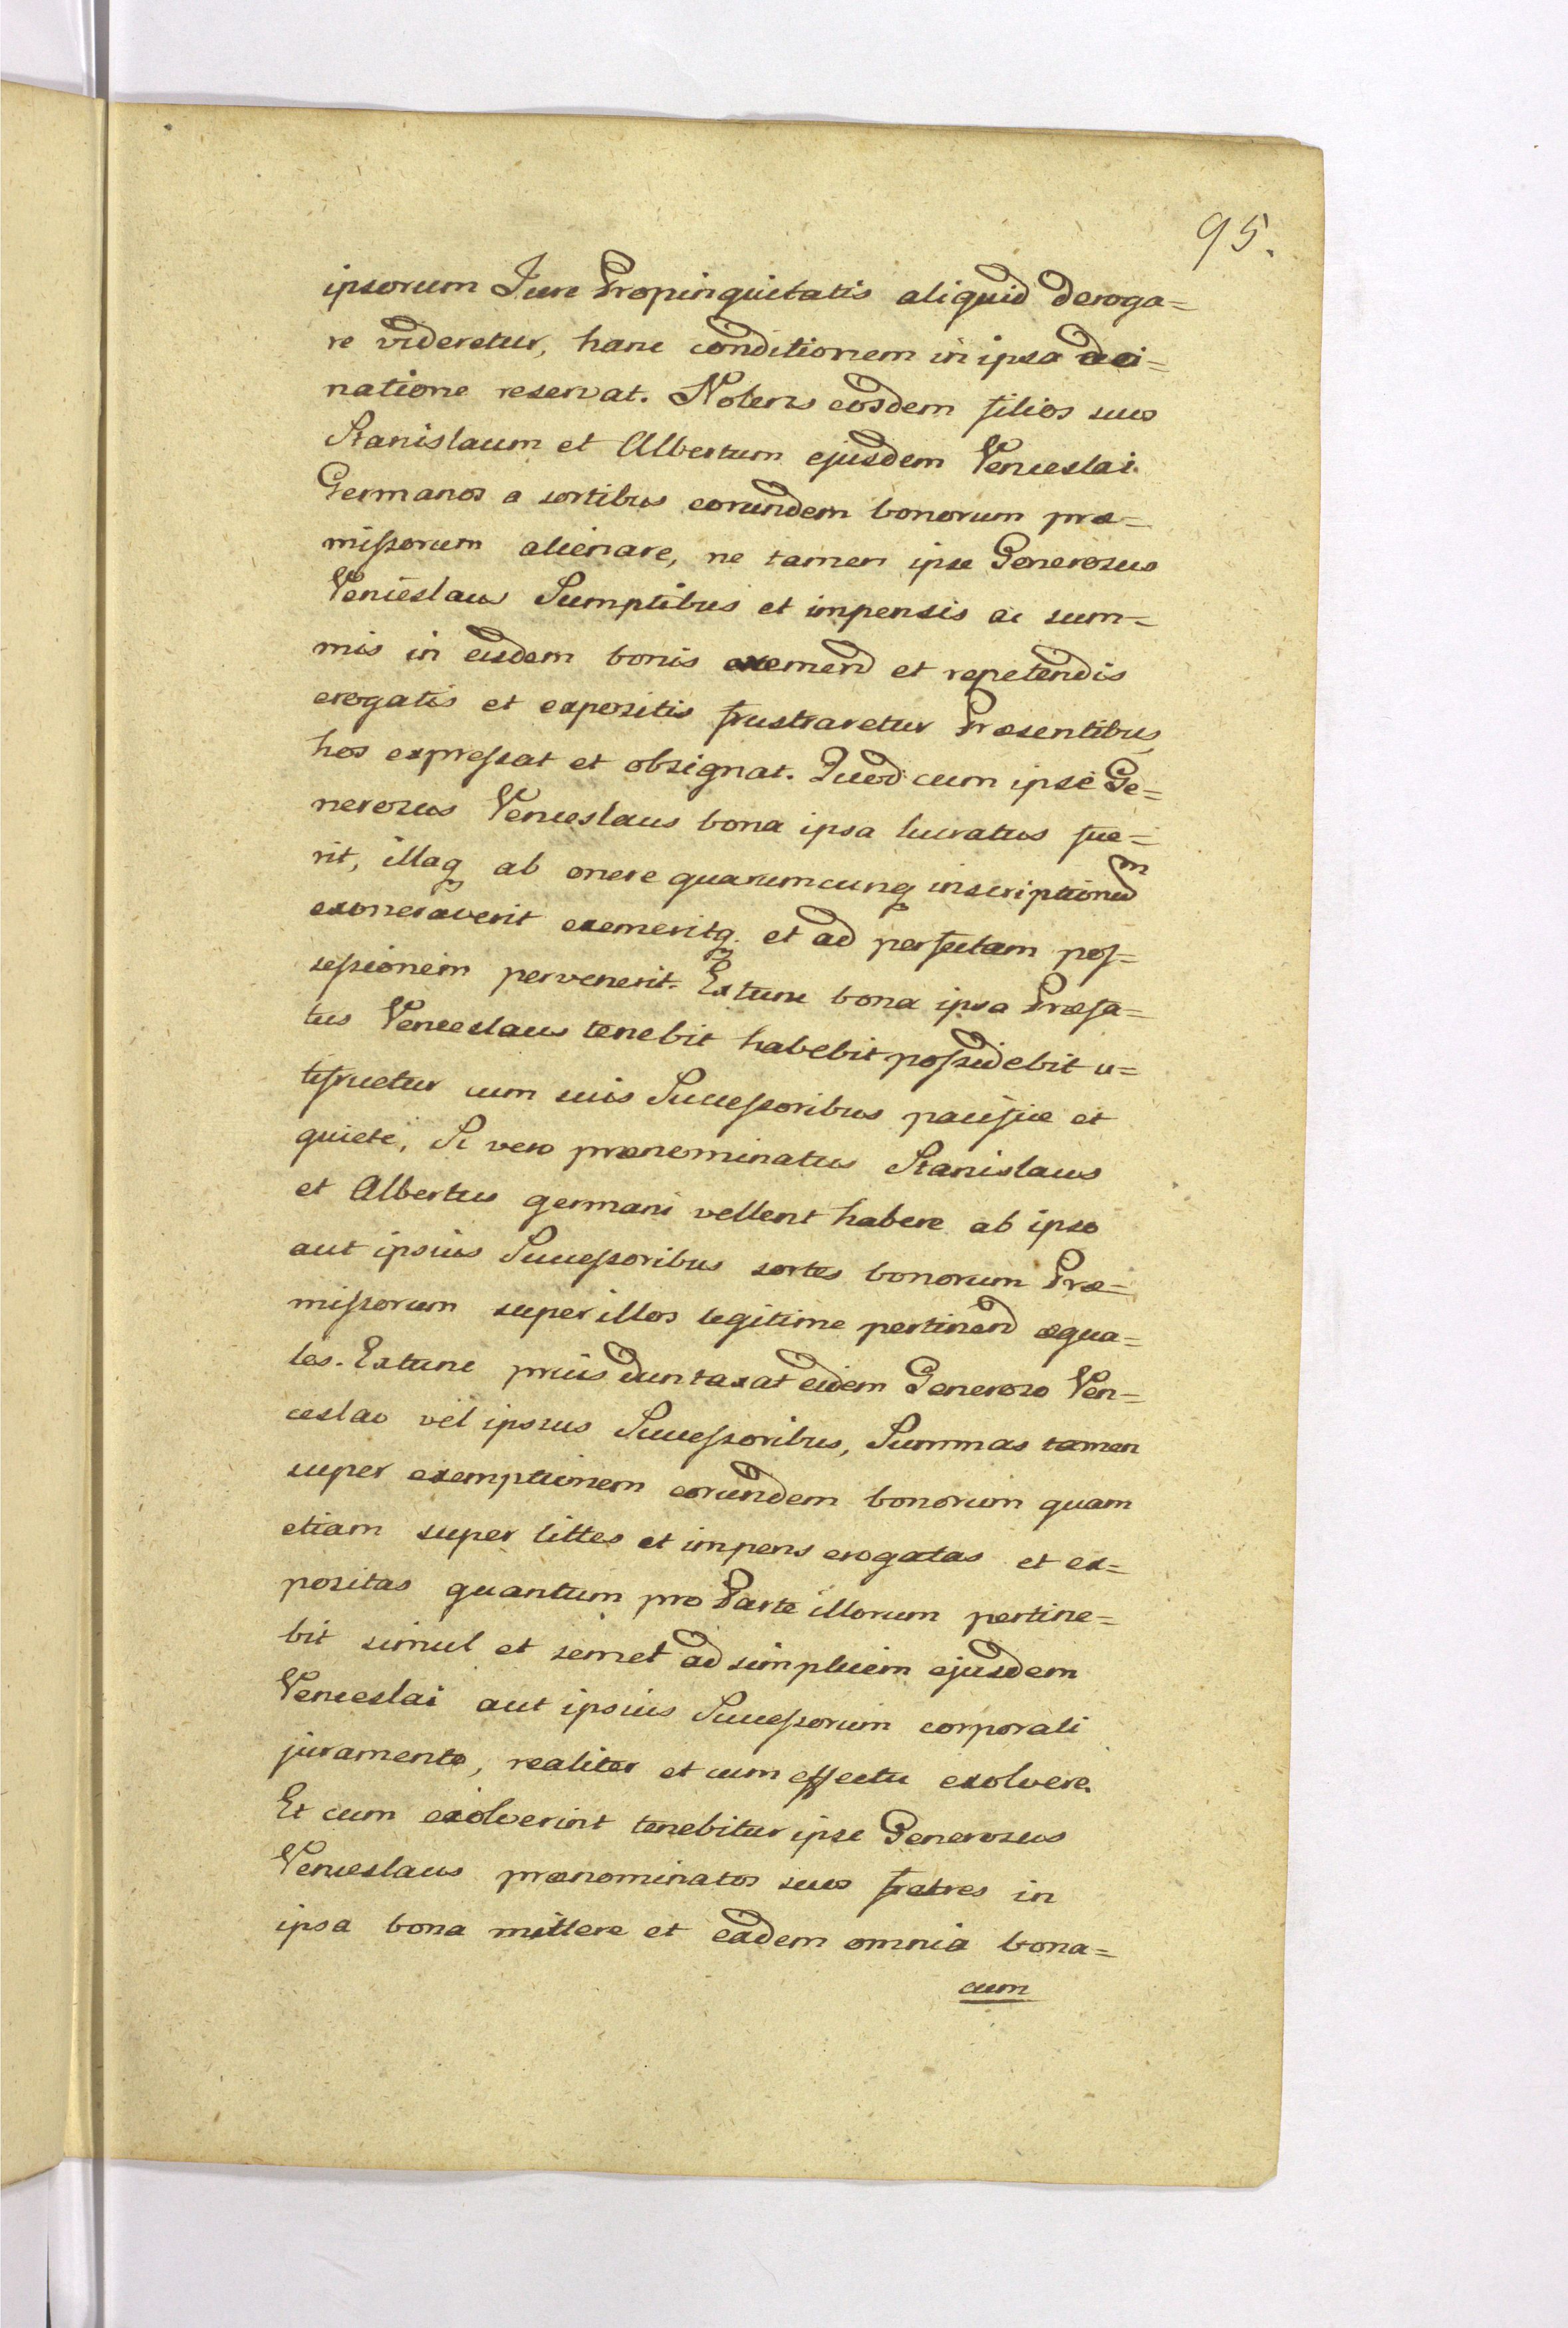 95.
ipsorum Jure Propinquitatis aliquid deroga=
re videretur, hanc conditionem in ipsa
natione reservat. Nolens eosdem filios suos
Stanislaum et Albertum ejusdem Venceslai
Germanos a sortibus eorundem bonorum præ=
mißorum alienare, ne tamen ipse Generosus
Venceslaus Sumptibus et impensis ac sum=
mis in eisdem bonis exemend et repetendis
erogatis et expositis frustraretur Præsentibus
hos expreßat et obsignat. Quod cum ipse Ge=
nerosus Venceslaus bona ipsa lucratus fue=
rit, illaq ab onere quarumcunq inscriptionum
exoneraverit exemeritq. et ad perfectam pos=
seßionem pervenerit. Extunc bona ipsa Præfa=
tus Venceslaus tenebit habebit poßidebit u=
tifruetur cum suis Succeßoribus pacifice et
quiete, Si vero prænominatus Stanislaus
et Albertus germani vellent habere ab ipso
aut ipsius Succeßoribus sortes bonorum Præ=
mißorum super illos legitime pertinend æqua=
les. Extunc prius duntaxat eidem Generoso Ven=
ceslao vel ipsius Succeßoribus, Summas tamen
super exemptionem eorundem bonorum quam
etiam super littes et impens erogatas et ex=
positas quantum pro Parte illorum pertine=
bit simul et semel ad simplicem ejusdem
Venceslai aut ipsius Succeßorum corporali
juramento, realiter et cum effectu exolvere.
Et cum exolverint tenebitur ipse Generosus
Venceslaus prænominatos suos fratres in
ipsa bona mittere et eadem omnia bona=
cum